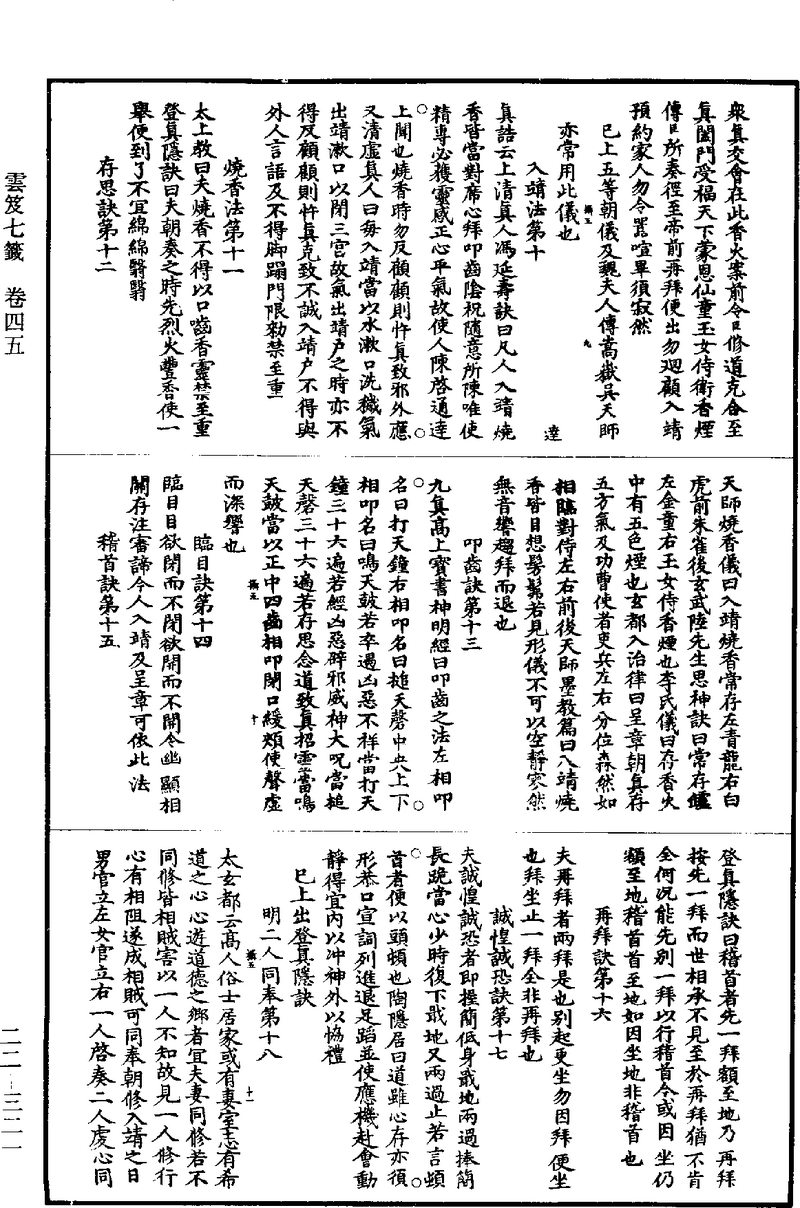 雲笈七籤 卷四五
二二—三二一
衆真交會在此香火案前令臣修道克合至
真闔門受福天下蒙恩仙童玉女侍衛香煙
傳臣所奏徑至帝前再拜便出勿迴顧入靖
預約家人勿令嚚喧畢須寂然
已上五等朝儀及魏夫人傳嵩嶽吳天師
亦常用此儀也
入靖法第十
真誥云上清真人馮延壽訣曰凡人入靖燒
香皆當對席心拜叩齒陰祝隨意所陳唯使
精專必獲靈感正心平氣故使人陳啓通達
上聞也燒香時勿反顧顧則忤真致邪外應
又清虛真人曰每入靖當以水漱口洗穢氣
出靖漱口以閉三宮故氣出靖戶之時亦不
得反顧顧則忤真克致不誠入靖戶不得與
外人言語及不得脚蹋門限勑禁至重
燒香法第十一
太上敕曰夫燒香不得以口嚙香靈禁至重
登真隱訣曰夫朝奏之時先烈火豐香使一
舉便到了不宜綿綿翳翳
存思訣第十二
天師燒香儀曰入靖燒香常存左青龍右白
虎前朱雀後玄武陸先生思神訣曰常存鑪
左金童右玉女侍香煙也李氏儀曰存香火
中有五色煙也玄都入治律曰呈章朝真存
五方氣及功曹使者吏兵左右分位森然如
相臨對侍左右前後天師墨教篇曰入靖燒
香皆目想髣髴若見形儀不可以空靜寥然
無音響趨拜而退也
叩齒訣第十三
九真高上寶書神明經曰叩齒之法左相叩
名曰打天鐘右相叩名曰搥天磬中央上下
相叩名曰鳴天鼓若卒遇凶惡不祥當打天
鐘三十六遍若經凶惡辟邪威神大呪當搥
天磬三十六遍若存思念道致真招靈當鳴
天鼓當以正中四齒相叩閉口緩頰使聲虛
而深響也
臨目訣第十四
臨目目欲閉而不閉欲開而不開令幽顯相
關存注審諦今人入靖及呈章可依此法
稽首訣第十五
登真隱訣曰稽首者先一拜額至地乃再拜
按先一拜而世相承不見至於再拜猶不肯
全何況能先別一拜以行稽首今或因坐仍
額至地稽首首至地如因坐地非稽首也
再拜訣第十六
夫再拜者兩拜是也別起更坐勿因拜便坐
也拜坐止一拜全非再拜也
誠惶誠恐訣第十七
夫誠惶誠恐者即握簡低身戢地兩過捧簡
長跪當心少時復下戢地又兩過止若言頓
首者便以頭頓也陶隱居曰道雖心存亦須
形恭口宣詞列進退足蹈並使應機赴會動
靜得宜內以冲神外以恊禮
已上出登真隱訣
明二人同奉第十八
太玄都云高人俗士居家或有妻室志有希
道之心心遊道德之鄉者宜夫妻同修若不
同修皆相賊害以一人不知故見一人修行
心有相阻遂成相賊可同奉朝修入靖之日
男官立左女官立右一人啓奏二人虔心同